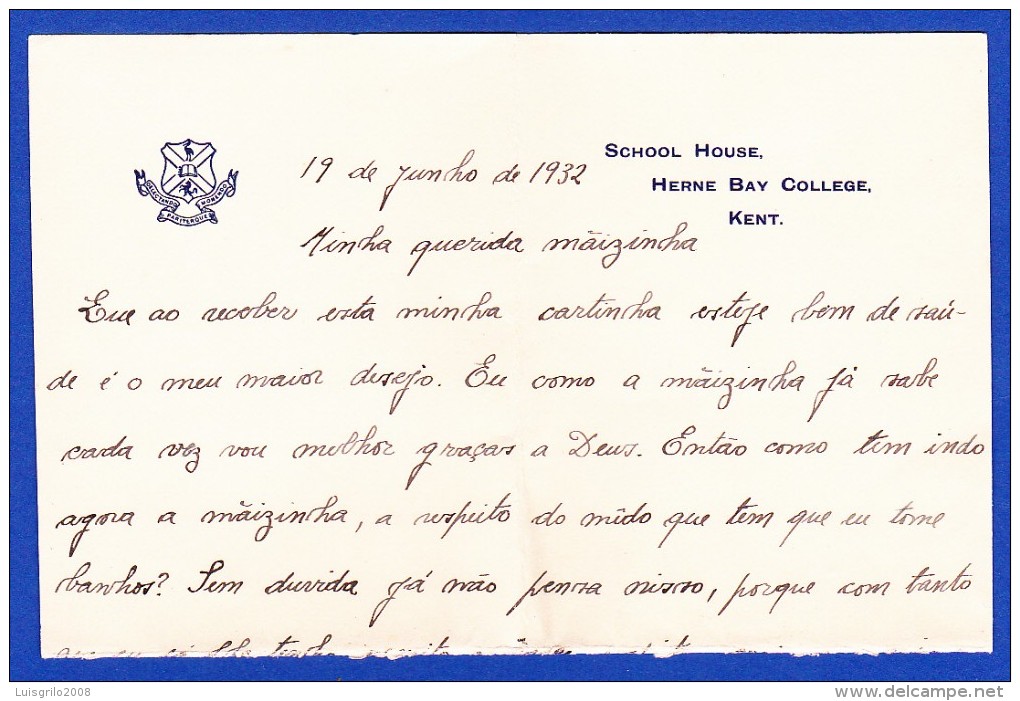 19 de Junho de 1932
SCHOOL HOUSE,
HERNE BAY COLLEGE,
KENT.
DELECTANDO PARITERQUE MONENDO
Minha querida mãizinha
Que ao receber esta minha cartinha esteje bem de saú-
de é o meu maior desejo. Eu como a mãizinha já sabe
cada vez vou melhor graças a Deus. Então como tem indo
agora a mãizinha, a respeito do mêdo que tem que eu tome
banhos? Sem duvida já não pensa nisso, porque com tanto
Luisgrilo2008
www.delcampe.net